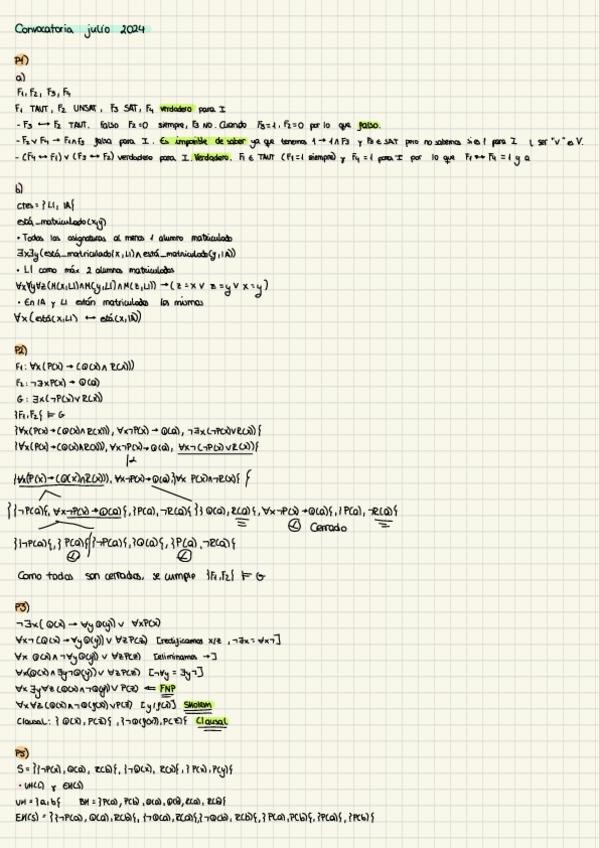 Convocatoria julio 2024
P1)
a)
F₁, F₂, F₃, F₄
F₁ TAUT, F₂ UNSAT, F₃ SAT, F₄ verdadero para I
- F₃ ↔ F₂ TAUT. Falso F₂=0 siempre, F₃ NO. Cuando F₃=1, F₂=0 por lo que falso.
- F₂ ∨ F₄ → F₁∧F₃ falsa para I. Es imposible de saber ya que tenemos 1→1∧F₃ y F₃ es SAT pero no sabemos si es 1 para I
- (F₄ ↔ F₁) ∨ (F₃ ↔ F₂) verdadero para I. Verdadero. F₁ es TAUT (F₁=1 siempre) y F₄=1 para I por lo que F₁ ↔ F₄ = 1 y a
b)
ctes = {LI, IA}
está_matriculado(x,y)
• Todas las asignaturas al menos 1 alumno matriculado
∃x∃y(está_matriculado(x,LI)∧está_matriculado(y,IA))
• LI como máx 2 alumnos matriculados
∀x∀y∀z(M(x,LI)∧M(y,LI)∧M(z,LI)) → (z=x ∨ z=y ∨ x=y)
• En IA y LI están matriculados los mismos
∀x(está(x,LI) ↔ está(x,IA))
P2)
F₁: ∀x(P(x) → (Q(x)∧R(x)))
F₂: ¬∃xP(x) → Q(a)
G: ∃x(¬P(x)∨R(x))
{F₁,F₂} ⊨ G
{∀x(P(x)→(Q(x)∧R(x))), ∀x¬P(x) → Q(a), ¬∃x(¬P(x)∨R(x))}
{∀x(P(x)→(Q(x)∧R(x))), ∀x¬P(x)→Q(a), ∀x¬(¬P(x)∨R(x))}
{∀x(P(x)→(Q(x)∧R(x))), ∀x¬P(x)→Q(a),}∀x P(x)∧¬R(x)}
{{¬P(a)}, ∀x¬P(x)→Q(a)}, {P(a), ¬R(a)} }{Q(a), R(a)}, ∀x¬P(x)→Q(a)}, {P(a), ¬R(a)}
Cerrado
{{¬P(a)}, {P(a)}{¬P(a)}, {Q(a)}, {P(a), ¬R(a)}
Como todas son cerradas, se cumple {F₁,F₂} ⊨ G
P3)
¬∃x(Q(x) → ∀yQ(y)) ∨ ∀xP(x)
∀x¬(Q(x)→∀yQ(y)) ∨ ∀zP(z) [rectificamos x/z, ¬∃x=∀x¬]
∀x Q(x)∧¬∀yQ(y)) ∨ ∀zP(z) [eliminamos →]
∀x(Q(x)∧∃y¬Q(y)) ∨ ∀zP(z) [¬∀y = ∃y¬]
∀x∃y∀z(Q(x)∧¬Q(y)) ∨ P(z) ⇐ FNP
∀x∀z(Q(x)∧¬Q(f(x))∨P(z)) [y/f(x)] Skolem
Clausal: {Q(x), P(z)}, {¬Q(f(x)), P(z)} Clausal
P5)
S = {{¬P(x), Q(x), R(b)}, {¬Q(x), R(x)}, {P(x), P(y)}
• UH(S) y EH(S)
UH = {a,b} BH = {P(a), P(b), Q(a), Q(b), R(a), R(b)}
EH(S) = {{¬P(a), Q(a), R(b)}, {¬Q(a), R(a)}, {¬Q(b), R(b)}, {P(a), P(b)}, {P(a)}, {P(b)}